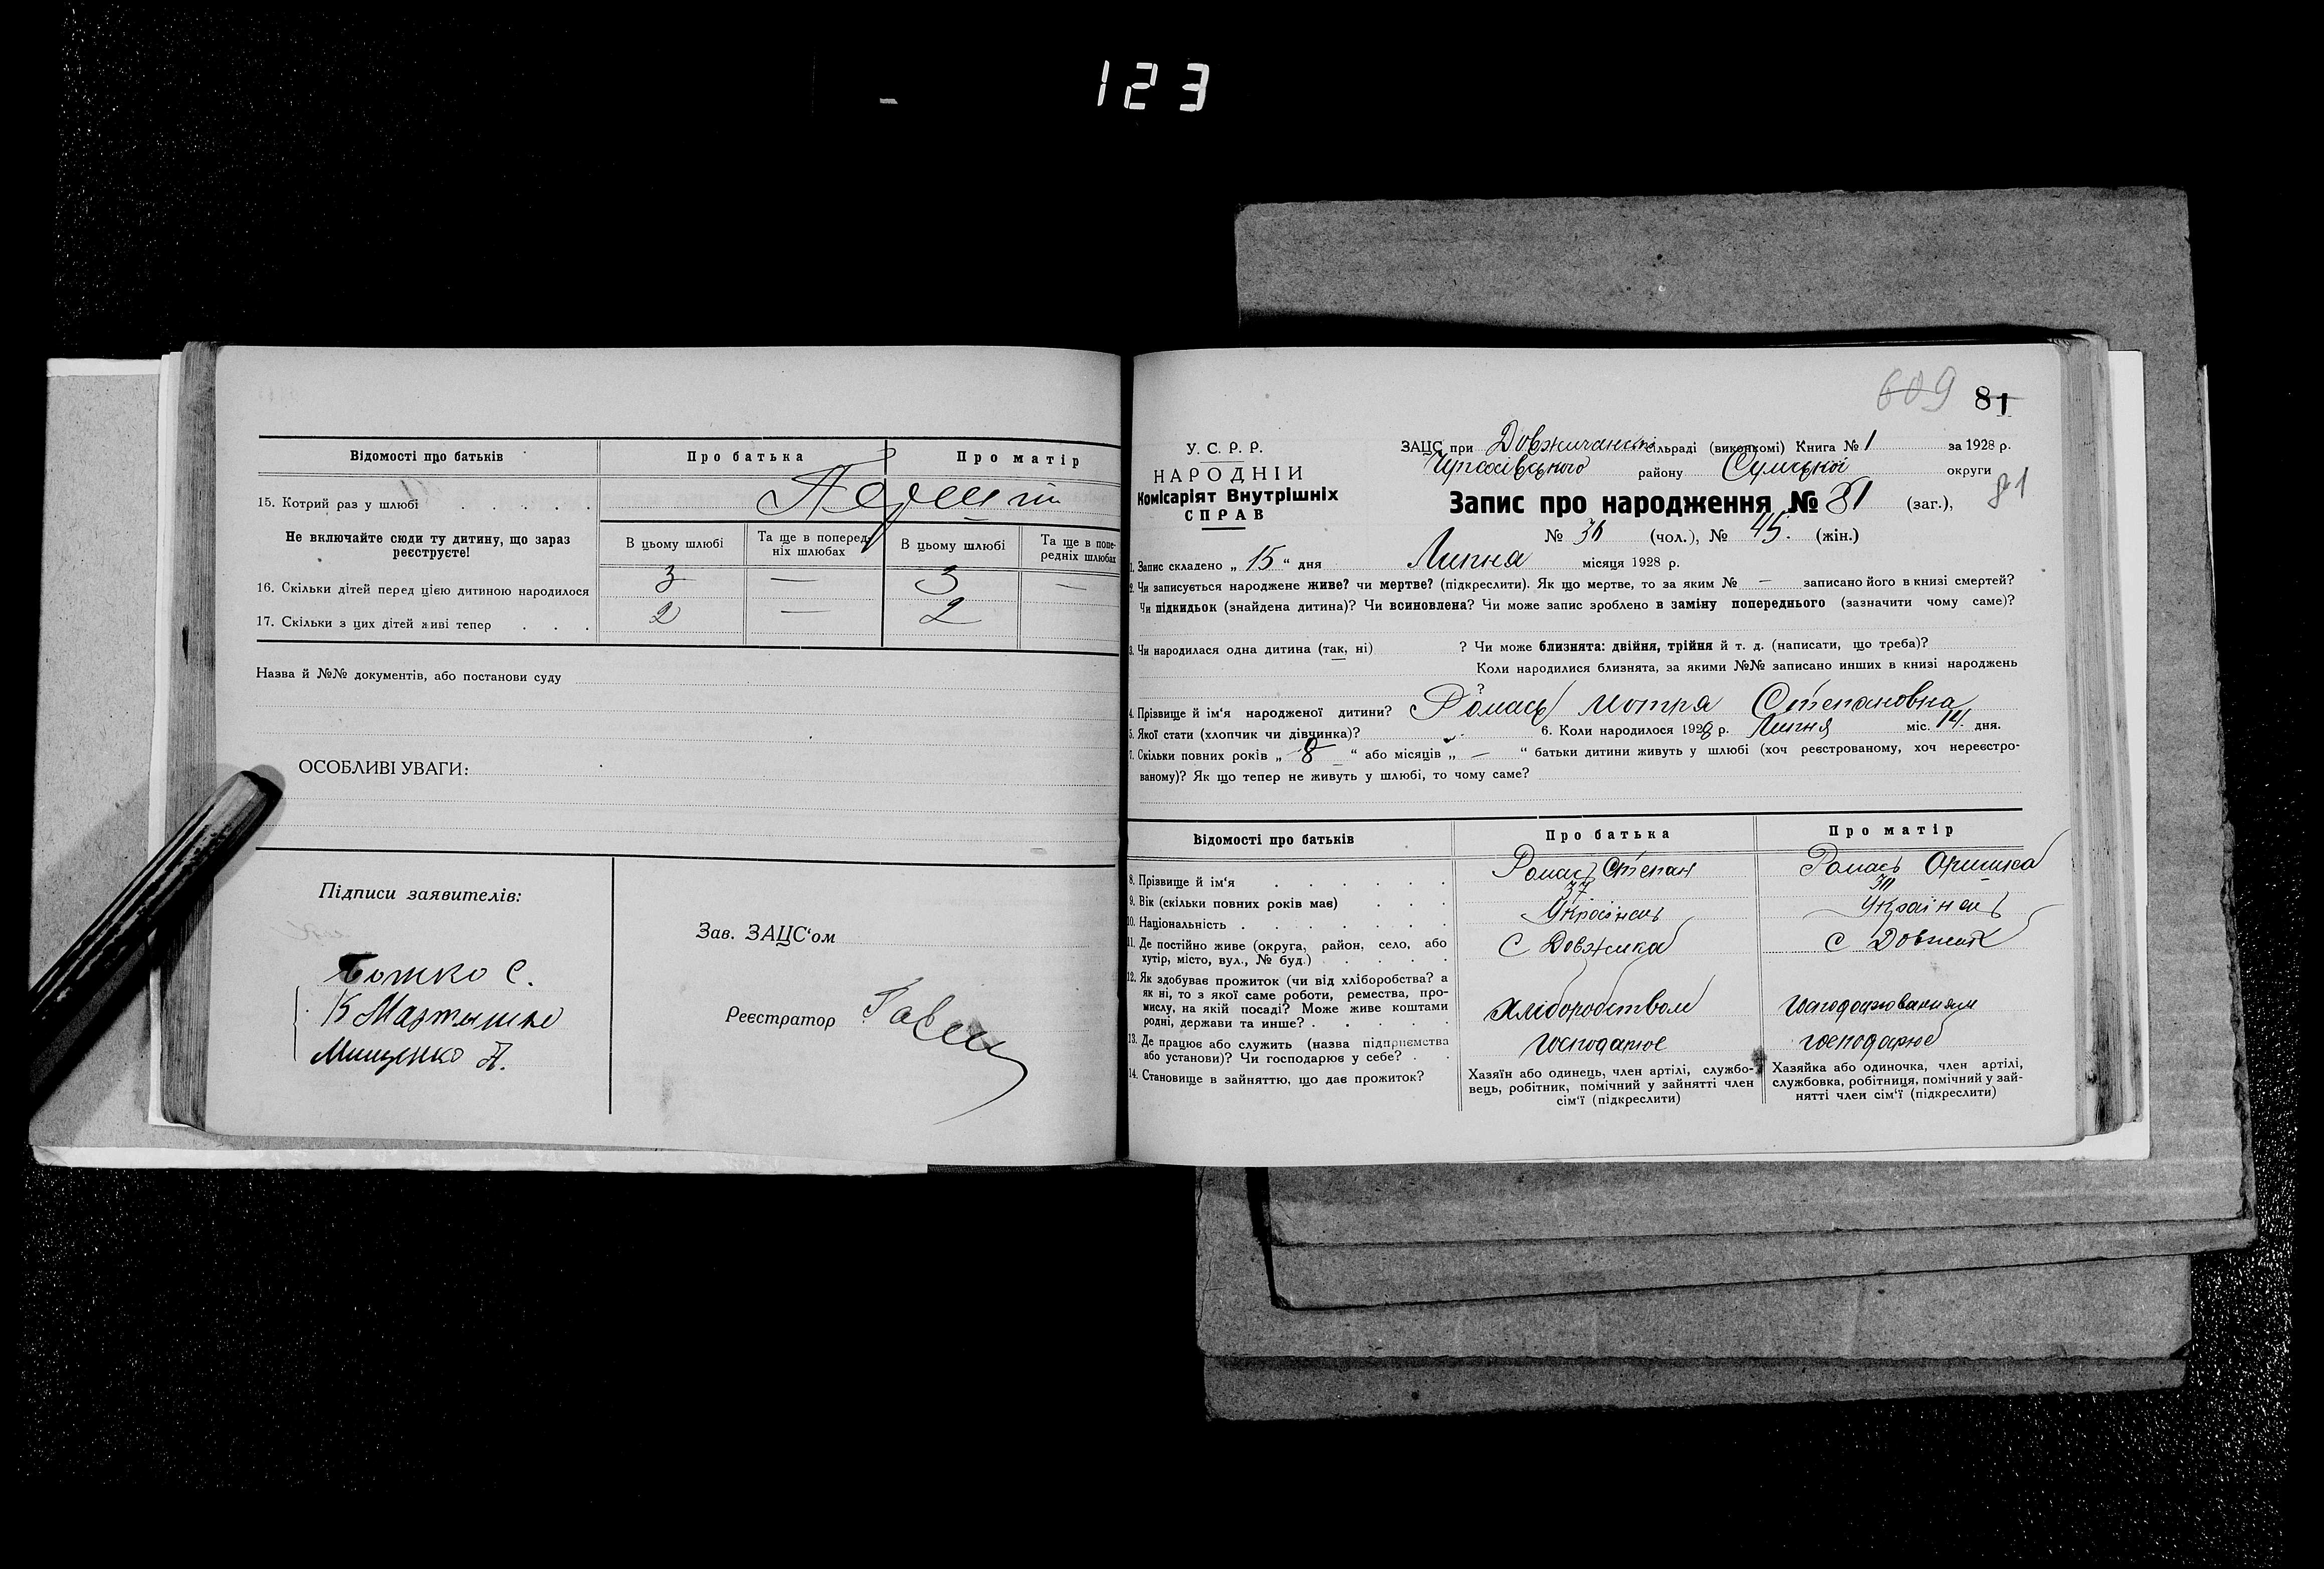 123
Відомості про батьків
Про батька
Про матір
15. Котрий раз у шлюбі
Не включайте сюди ту дитину, що зараз реєструєте!
В цьому шлюбі
Та ще в поперед-
ніх шлюбах
В цьому шлюбі
Та ще в попе-
редніх шлюбах
16. Скільки дітей перед цією дитиною народилося 3 — 3 —
17. Скільки з цих дітей живі тепер 2 — 2
Назва й №№ документів, або постанови суду
ОСОБЛИВІ УВАГИ:
Підписи заявителів:
Божко С.
К Мартыненко
Мищенко А.
Зав. ЗАЦС'ом
Реєстратор
609 81
У. С. Р. Р.
НАРОДНІЙ
Комісаріят Внутрішніх
СПРАВ
ЗАЦС при Довжичанській сільраді (виконкомі) Книга № 1 за 1928 р.
району Сумської округи
Запис про народження № 81 (заг.), 81
№ 36 (чол.), № 45. (жін.)
1. Запис складено „ 15 “ дня Липня місяця 1928 р.
2. Чи записується народжене живе? чи мертве? (підкреслити). Як що мертве, то за яким № — записано його в книзі смертей?
Чи підкидьок (знайдена дитина)? Чи всиновлена? Чи може запис зроблено в заміну попереднього (зазначити чому саме)?
3. Чи народилася одна дитина (так, ні) ? Чи може близнята: двійня, трійня й т. д. (написати, що треба)?
Коли народилися близнята, за якими №№ записано инших в книзі народжень
?
4. Прізвище й ім'я народженої дитини? Ромась Мотря Степановна
5. Якої стати (хлопчик чи дівчинка)? 6. Коли народилося 1928 р. Липня міс. 14. дня.
7. Скільки повних років „ 8 “ або місяців „ — “ батьки дитини живуть у шлюбі (хоч реєстрованому, хоч нереєстро-
ваному)? Як що тепер не живуть у шлюбі, то чому саме?
Відомості про батьків
Про батька
Про матір
8. Прізвище й ім'я Ромась Степан Ромась Оришка
9. Вік (скільки повних років має) 37 30
10. Національність Українець Українець
11. Де постійно живе (округа, район, село, або
хутір, місто, вул., № буд.) С Довжика С Довжик
12. Як здобуває прожиток (чи від хліборобства? а
як ні, то з якої саме роботи, ремества, про-
мислу, на якій посаді? Може живе коштами
родні, держави та инше? Хліборобством Господарюванням
13. Де працює або служить (назва підприємства
або установи)? Чи господарює у себе? Господарює господарює
14. Становище в зайняттю, що дає прожиток?
Хазяїн або одинець, член артілі, службо-
вець, робітник, помічний у зайнятті член
сім'ї (підкреслити)
Хазяйка або одиночка, член артілі,
службовка, робітниця, помічний у зай-
нятті член сім'ї (підкреслити)